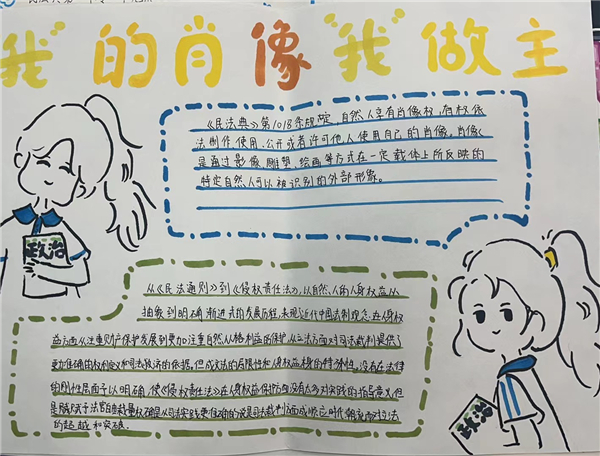 "我"的肖像"我"做主
《民法典》第1018条规定,自然人享有肖像权,有权依
法制作、使用、公开或者许可他人使用自己的肖像。肖像
是通过影像、雕塑、绘画等方式在一定载体上所反映的
特定自然人可以被识别的外部形象。
政治
从《民法通则》到《侵权责任法》,以自然人的人身权益从
抽象到明确渐进式的发展历程,表现近代中国法制观念,在人身权
益方面从注重财产保护发展到更加注重自然人人格利益的保护,从立法方面对司法裁判提供了
更加准确的权利定义和司法救济的依据。但成文法的局限性和人身权益本身的特殊性,没有在法律
的刚性层面予以明确,使《侵权责任法》在人身权益保护方面没有
的超越和突破。
政治